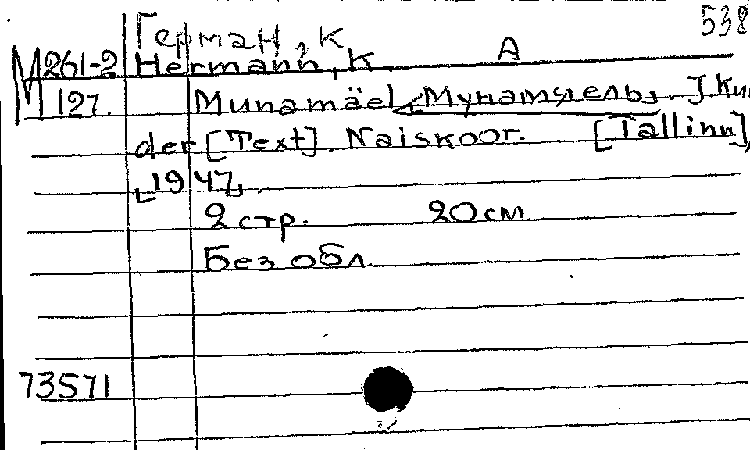 538
Герман, К
М261-2 Hermann, K A
127. Munamäel <Мунамяель>. J. Kun
der [Text]. Naiskoor. [Tallinn],
[1947].
2 стр. 20 см
Без обл.
73571